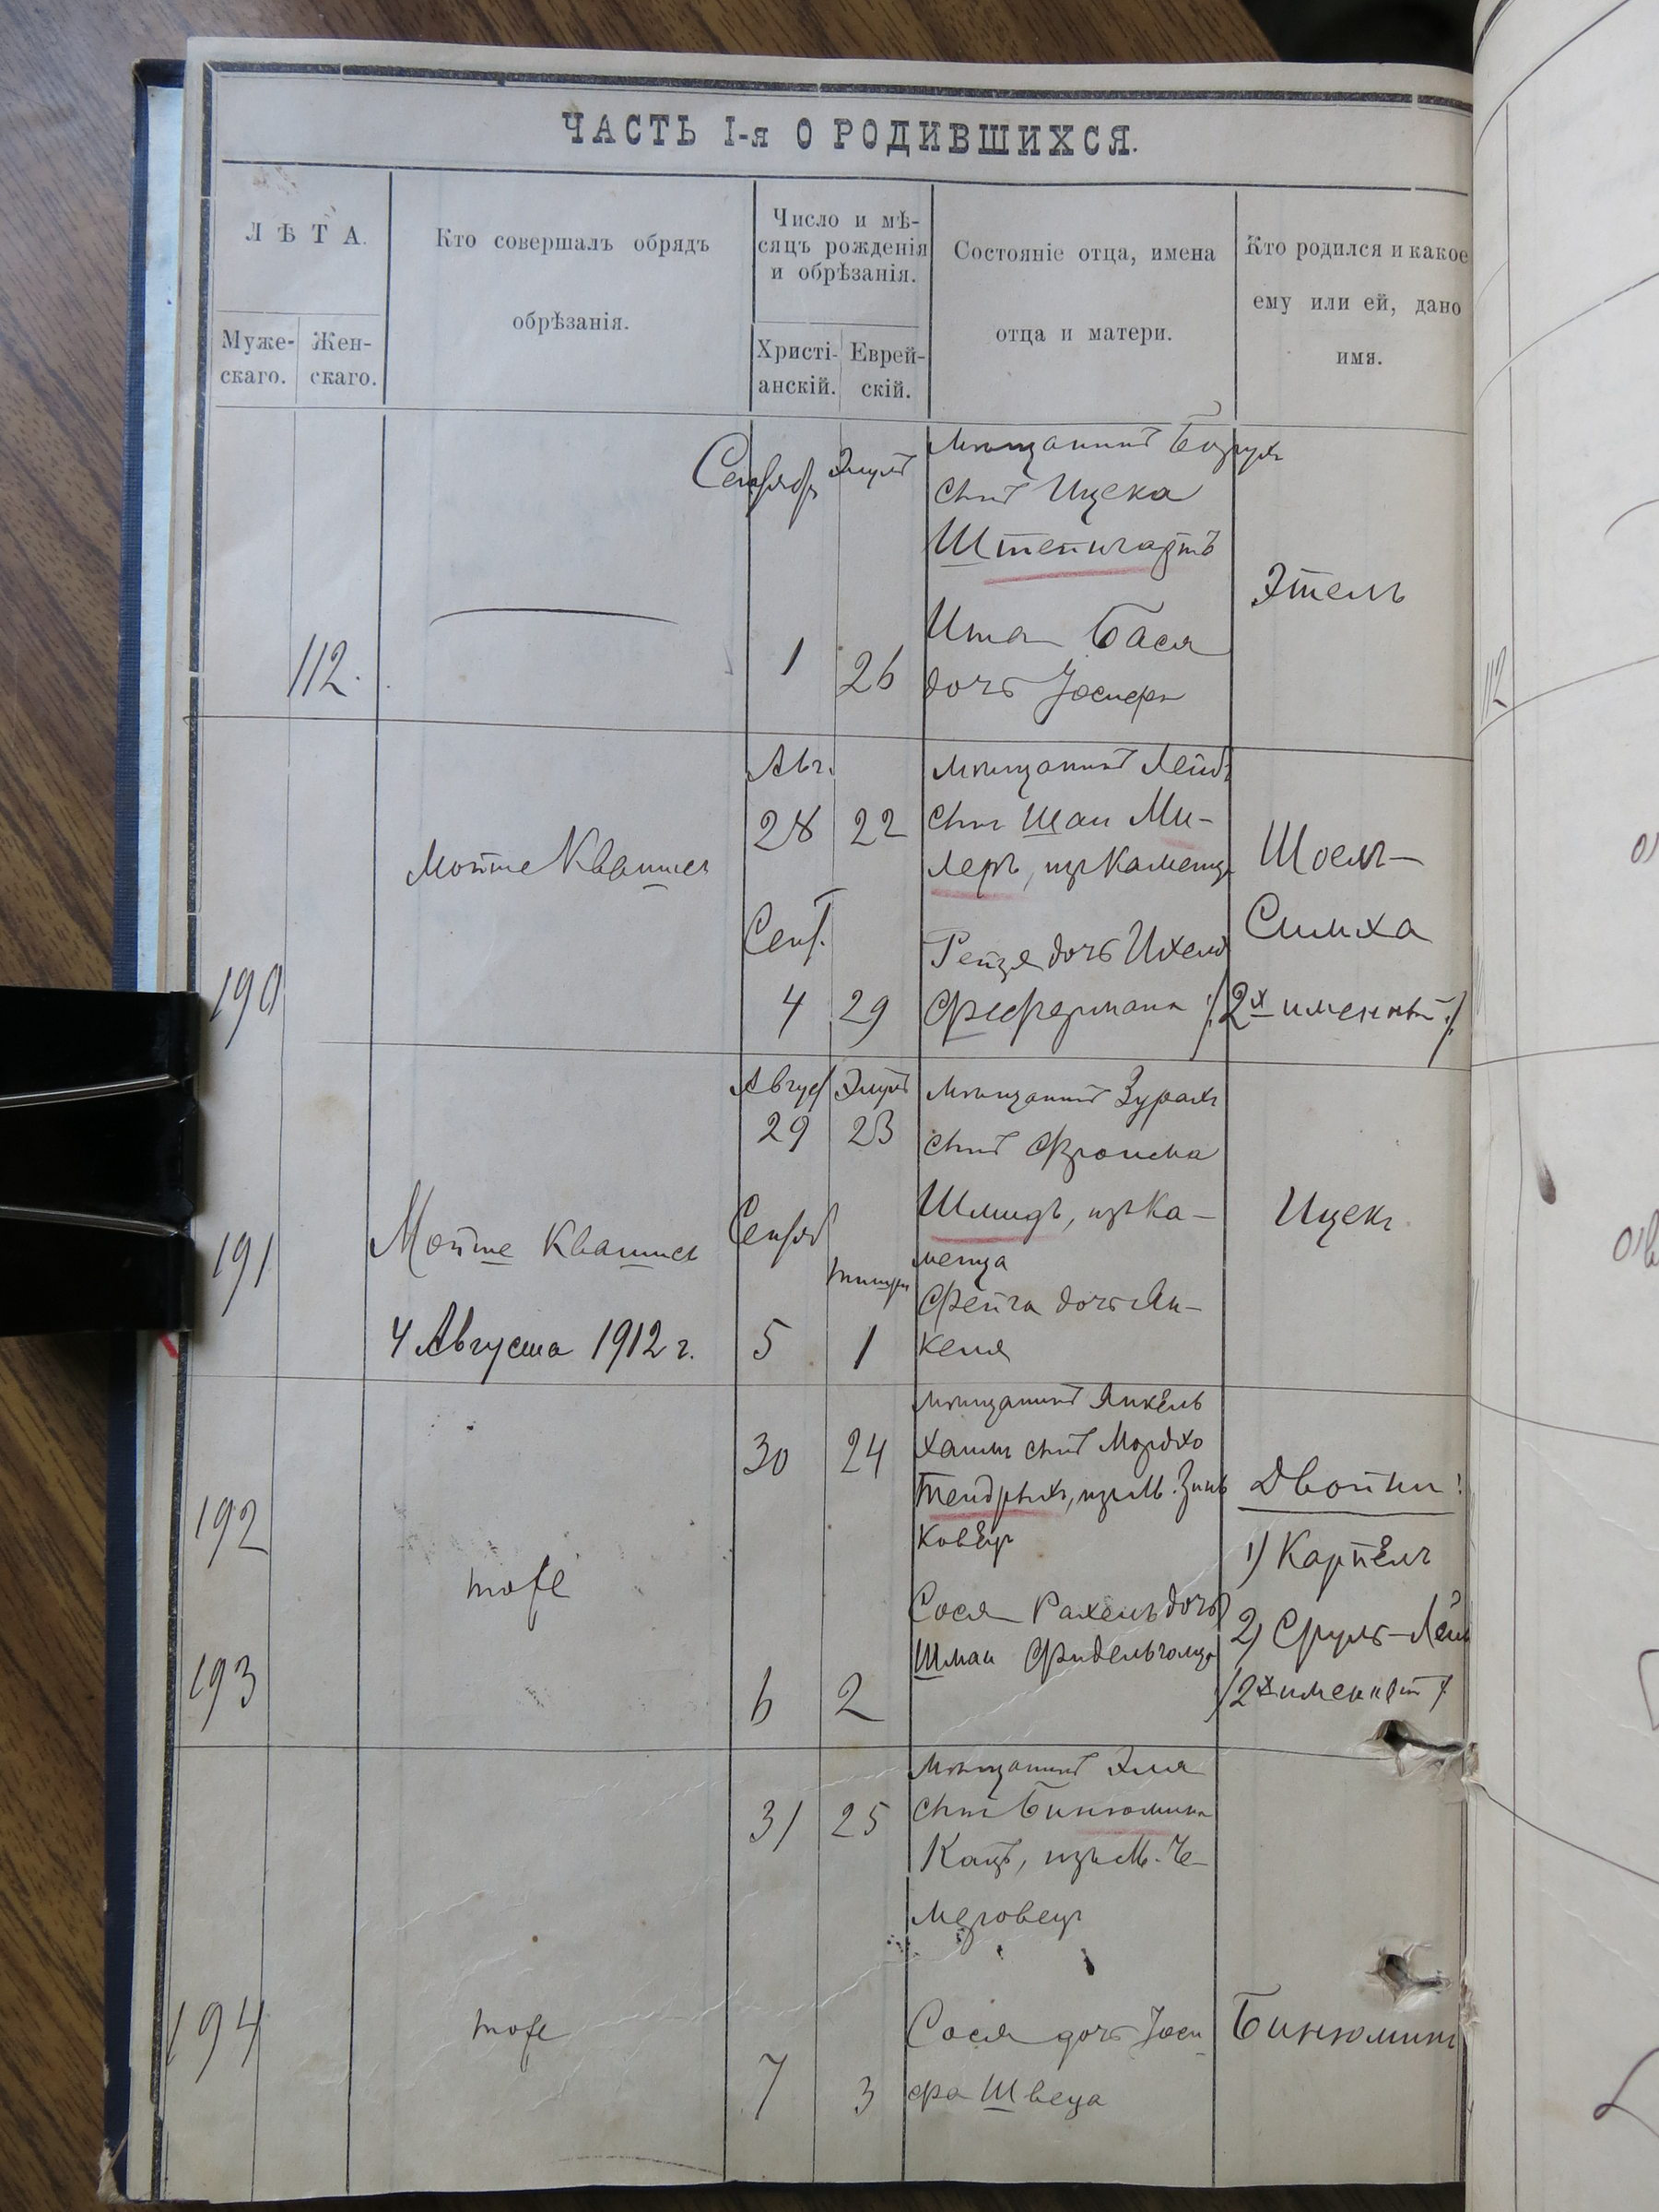 ЧАСТЬ I-я О РОДИВШИХСЯ.
ЛѢТА.
Муже-
скаго.
Жен-
скаго.
Кто совершалъ обрядъ
обрѣзанія.
Число и мѣ-
сяцъ рожденія
и обрѣзанія.
Христі-
анскій.
Еврей-
скій.
Состояніе отца, имена
отца и матери.
Кто родился и какое
ему или ей, дано
имя.
112.
1
26
мѣщанинъ Борухъ
сынъ Ицека
Ита Бася
дочь Іосифа
Этель
190
Мойше Квашнсъ
Авг.
28
22
Сент.
4
29
мѣщанинъ Лейбъ
сынъ Шаи Ми-
леръ, изъ Каменца
Рейзя дочь Ихеля
Фефермана
Шоель-
Симха
/2х именный/
191
Мойше Квашнсъ
4 Августа 1912 г.
Август
Элулъ
29
23
Сентяб
Тишри
5
1
мѣщанинъ Зурахъ
сынъ Фроима
Шмидъ, изъ Ка-
менца
Фейга дочь Ян-
келя
Ицекъ
192
193
тоже
30
24
6
2
мѣщанинъ Янкель
Хаимъ сынъ Мордхо
Тендрыхъ, изъ М. Зинь
ковецъ
Сося Рахель дочь
Шмаи Фидельгольца
Двойни:
1) Карпель
2) Сруль-Лейб
/2х именный/
194
тоже
31
25
7
3
мѣщанинъ Эля
сынъ Бинюмина
Кацъ, изъ М. Че-
меровецъ
Сося дочь Іоси
фа Швеца
Бинюминъ
112